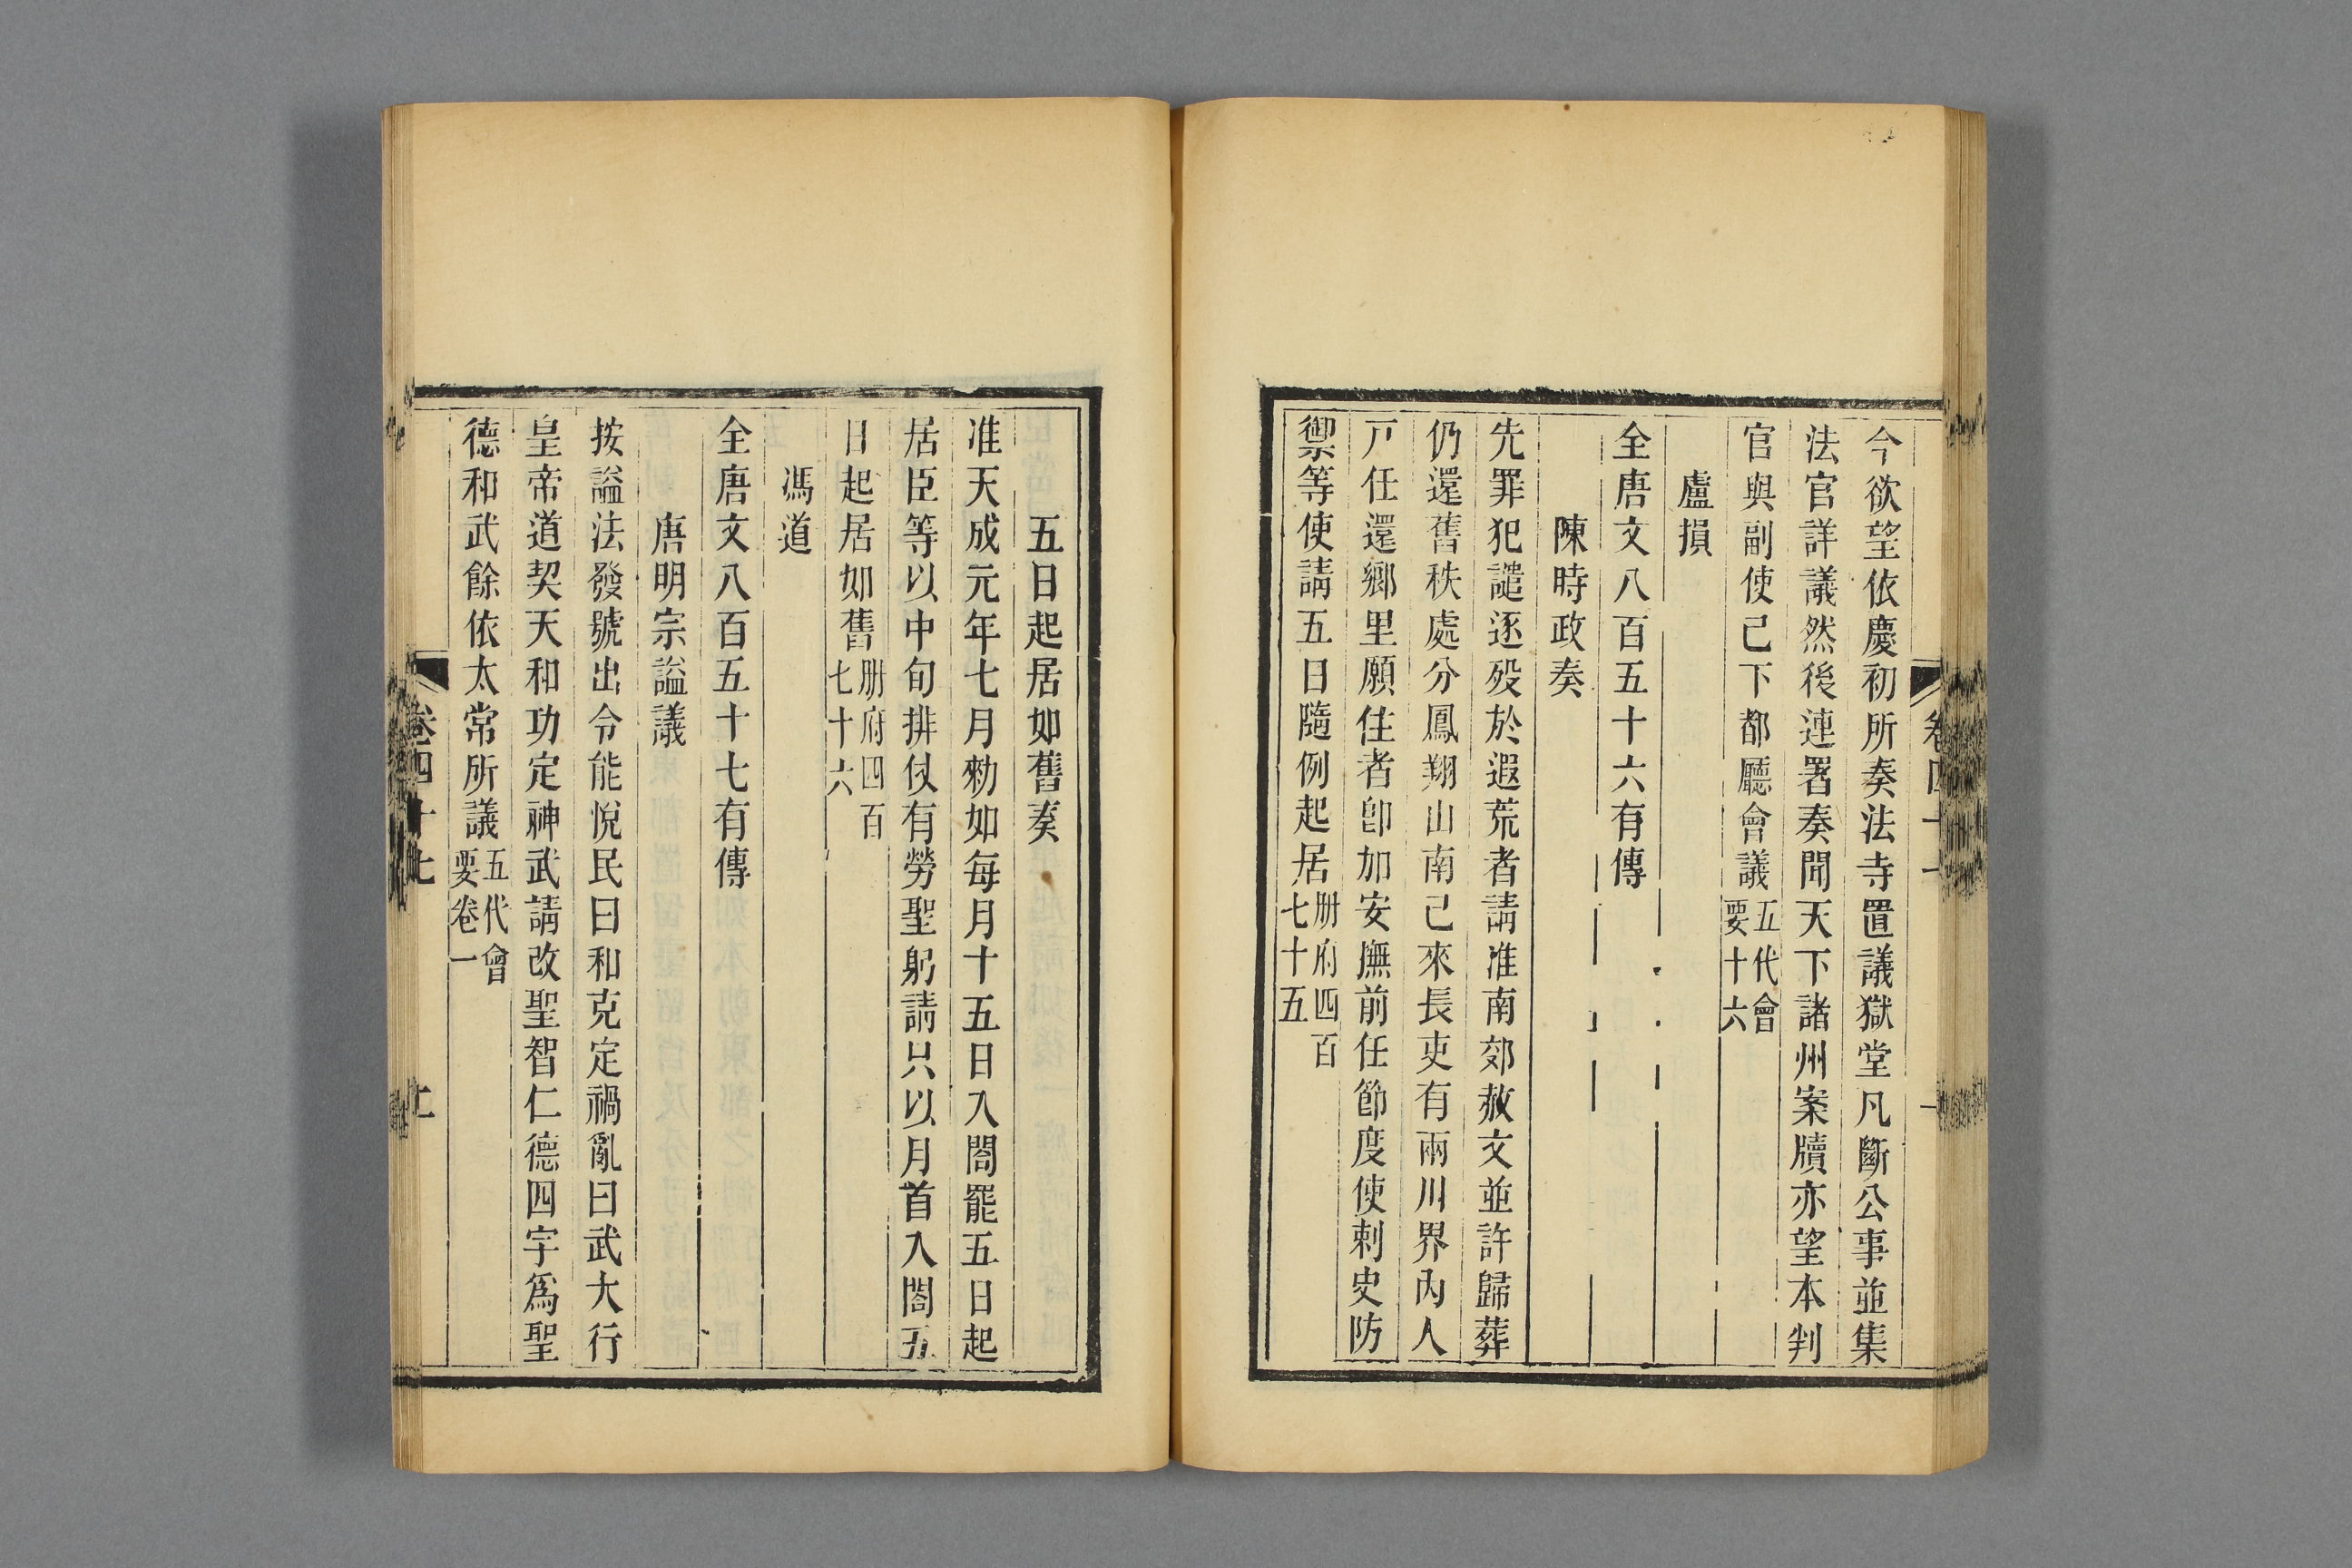 今欲望依慶初所奏法寺置議獄堂凡斷公事並集
法官詳議然後連署奏聞天下諸州案牘亦望本判
官與副使已下都廳會議五代會要十六
盧損
全唐文八百五十六有傳
陳時政奏
先罪犯譴逐歿於遐荒者請准南郊赦文並許歸葬
仍還舊秩處分鳳翔山南已來長吏有兩川界內人
戶任還鄉里願住者卽加安撫前任節度使刺史防
禦等使請五日隨例起居册府四百七十五
五日起居如舊奏
准天成元年七月勑如每月十五日入閤罷五日起
居臣等以中旬排仗有勞聖躬請只以月首入閤五
日起居如舊册府四百七十六
馮道
全唐文八百五十七有傳
唐明宗諡議
按諡法發號出令能悅民曰和克定禍亂曰武大行
皇帝道契天和功定神武請改聖智仁德四字爲聖
德和武餘依太常所議五代會要卷一
卷四十七